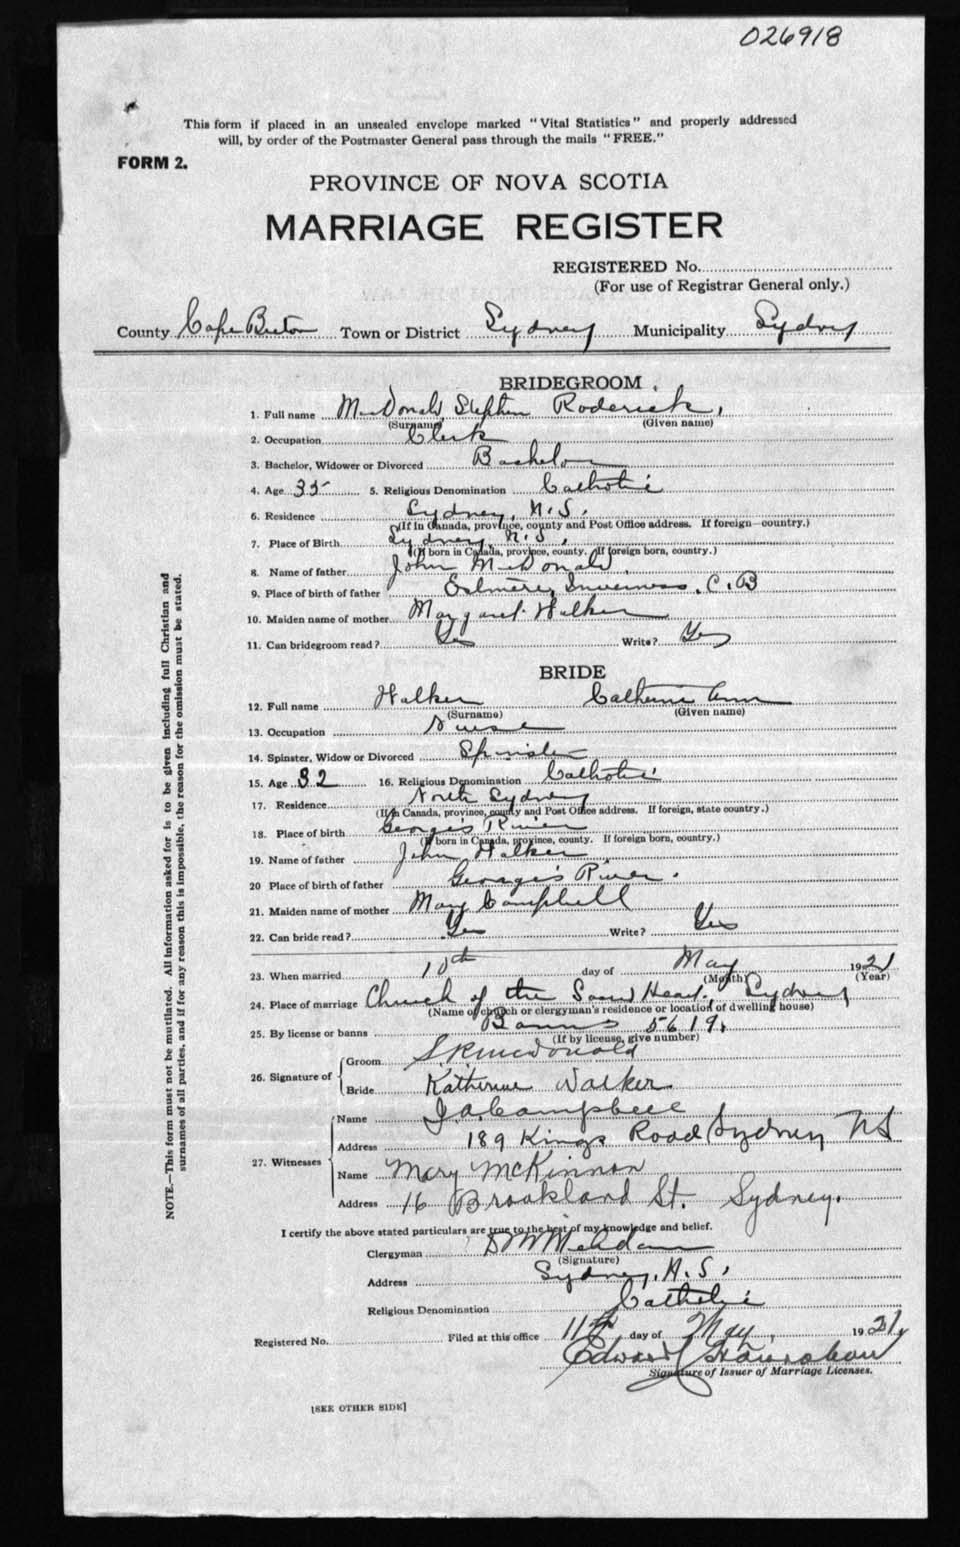 026918
This form if placed in an unsealed envelope marked "Vital Statistics" and properly addressed
will, by order of the Postmaster General pass through the mails "FREE."
FORM 2.
PROVINCE OF NOVA SCOTIA
MARRIAGE REGISTER
REGISTERED No.
(For use of Registrar General only.)
County Cape Breton Town or District Sydney Municipality Sydney
BRIDEGROOM
1. Full name McDonald, Stephen Roderick,
(Surname) (Given name)
2. Occupation Clerk
3. Bachelor, Widower or Divorced Bachelor
4. Age 35 5. Religious Denomination Catholic
6. Residence Sydney, N.S.
(If in Canada, province, county and Post Office address. If foreign—country.)
7. Place of Birth Sydney N.S.
(If born in Canada, province, county. If foreign born, country.)
8. Name of father John McDonald
9. Place of birth of father Inverness, C.B
10. Maiden name of mother Margaret Walker
11. Can bridegroom read? Yes Write? Yes
BRIDE
12. Full name Walker Catherine Ann
(Surname) (Given name)
13. Occupation Nurse
14. Spinster, Widow or Divorced Spinster
15. Age 32 16. Religious Denomination Catholic
17. Residence North Sydney
(If in Canada, province, county and Post Office address. If foreign, state country.)
18. Place of birth Georges River
(If born in Canada, province, county. If foreign born, country.)
19. Name of father John Walker
20 Place of birth of father Georges River.
21. Maiden name of mother Mary Campbell
22. Can bride read? Yes Write? Yes
23. When married 10th day of May 1921
(Month) (Year)
24. Place of marriage Church of the Sacred Heart, Sydney
(Name of church or clergyman's residence or location of dwelling house)
25. By license or banns Banns 5619.
(If by license, give number)
26. Signature of Groom S R McDonald
Bride Katherine Walker
27. Witnesses Name J.A. Campbell
Address 189 Kings Road Sydney NS
Name Mary McKinnon
Address 16 Brookland St. Sydney.
I certify the above stated particulars are true to the best of my knowledge and belief.
Clergyman
(Signature)
Address Sydney, N.S.
Religious Denomination Catholic
Registered No. Filed at this office 11th day of May, 1921,
Edward
Signature of Issuer of Marriage Licenses.
[SEE OTHER SIDE]
NOTE.—This form must not be mutilated. All information asked for is to be given including full Christian and
surnames of all parties, and if for any reason this is impossible, the reason for the omission must be stated.